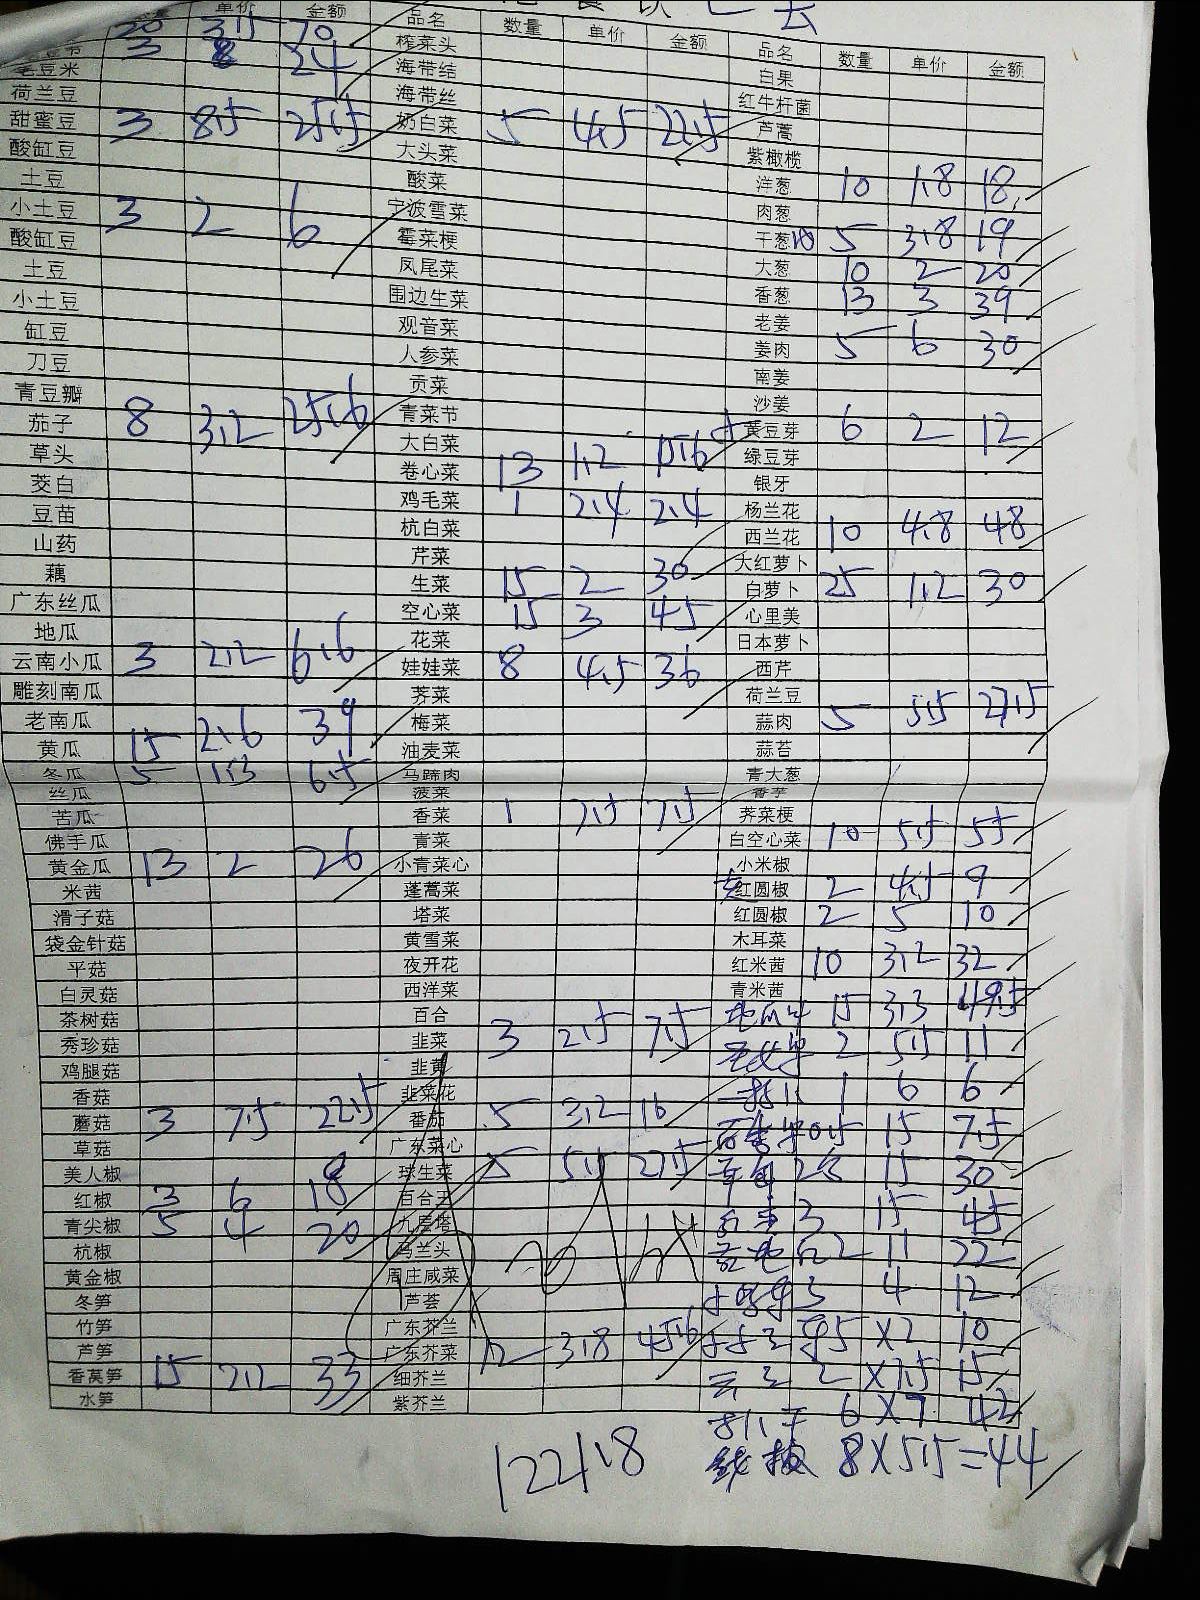 单价 金额 品名 数量 单价 金额 品名 数量 单价 金额
20 3.5 70 榨菜头 白果
3 8 24 海带结 红牛杆菌
毛豆米 海带丝 芦蒿
荷兰豆 奶白菜 5 4.5 22.5 紫橄榄
甜蜜豆 3 8.5 25.5 大头菜 洋葱 10 1.8 18
酸缸豆 酸菜 肉葱
土豆 宁波雪菜 干葱 5 3.8 19
小土豆 3 2 6 霉菜梗 大葱 10 2 20
酸缸豆 凤尾菜 香葱 13 3 39
土豆 围边生菜 老姜
小土豆 观音菜 姜肉 5 6 30
缸豆 人参菜 南姜
刀豆 贡菜 沙姜
青豆瓣 青菜节 黄豆芽 6 2 12
茄子 8 3.2 25.6 大白菜 绿豆芽
草头 卷心菜 13 1.2 15.6 银牙
茭白 鸡毛菜 1 2.4 2.4 杨兰花
豆苗 杭白菜 西兰花 10 4.8 48
山药 芹菜 大红萝卜
藕 生菜 15 2 30 白萝卜 25 1.2 30
广东丝瓜 空心菜 15 3 45 心里美
地瓜 花菜 日本萝卜
云南小瓜 3 2.2 6.6 娃娃菜 8 4.5 36 西芹
雕刻南瓜 荠菜 荷兰豆
老南瓜 梅菜 蒜肉 5 5.5 27.5
黄瓜 15 2.6 39 油麦菜 蒜苔
冬瓜 5 1.3 6.5 马蹄肉 青大葱
丝瓜 菠菜 香芋
苦瓜 香菜 1 7.5 7.5 荠菜梗
佛手瓜 青菜 白空心菜 10 5.5 55
黄金瓜 13 2 26 小青菜心 小米椒
米茜 蓬蒿菜 红圆椒 2 4.5 9
滑子菇 塔菜 红圆椒 2 5 10
袋金针菇 黄雪菜 木耳菜
平菇 夜开花 红米茜 10 3.2 32
白灵菇 西洋菜 青米茜
茶树菇 百合 15 3.3 49.5
秀珍菇 韭菜 3 2.5 7.5 2 5.5 11
鸡腿菇 韭黄 1 6 6
香菇 韭菜花
蘑菇 3 7.5 22.5 番茄 5 3.2 16 0.5 15 7.5
草菇 广东菜心
美人椒 球生菜 5 5.5 27.5 15 30
红椒 3 6 18 百合王 3 15 45
青尖椒 5 4 20 九层塔
杭椒 马兰头 2 11 22
黄金椒 周庄咸菜 3 4 12
冬笋 芦荟
竹笋 广东芥兰 5 X2 10
芦笋 广东芥菜 12 3.8 45.6
香莴笋 15 2.2 33 细芥兰 2 X7.5 15
水笋 紫芥兰 6 X7 42
1224.8 8X5.5=44